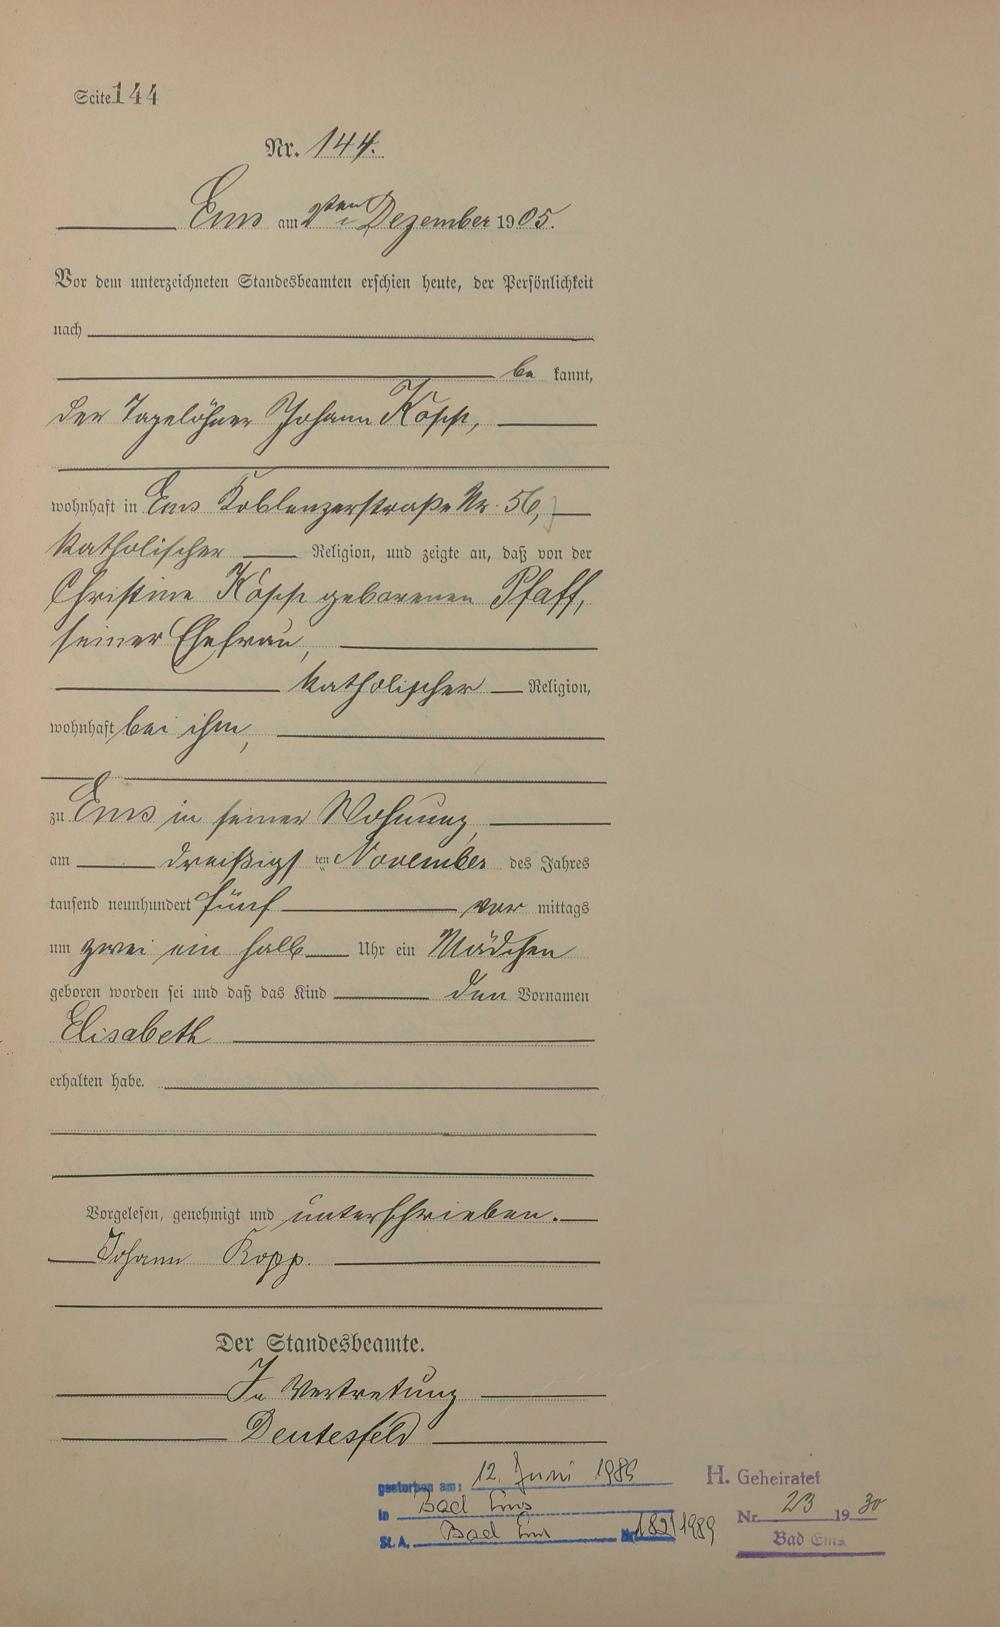 Seite 144
Nr. 144.
Ems am 2ten Dezember 1905.
Vor dem unterzeichneten Standesbeamten erschien heute, der Persönlichkeit
nach
be kannt,
der Tagelöhner Johann Kopp,
wohnhaft in Ems Koblenzerstraße Nr. 56,
katholischer Religion, und zeigte an, daß von der
Christine Kopp geborenen Pfaff,
seiner Ehefrau,
katholischer Religion,
wohnhaft bei ihm,
zu Ems in seiner Wohnung,
am dreißigsten November des Jahres
tausend neunhundert fünf vor mittags
um zwei ein halb Uhr ein Mädchen
geboren worden sei und daß das Kind den Vornamen
Elisabeth
erhalten habe.
Vorgelesen, genehmigt und unterschrieben.
Johann Kopp.
Der Standesbeamte.
In Vertretung
gestorben am: 12. Juni 1989
in Bad Ems
St. A. Bad Ems Nr. 182/1989
H. Geheiratet
Nr. 23 1930
Bad Ems